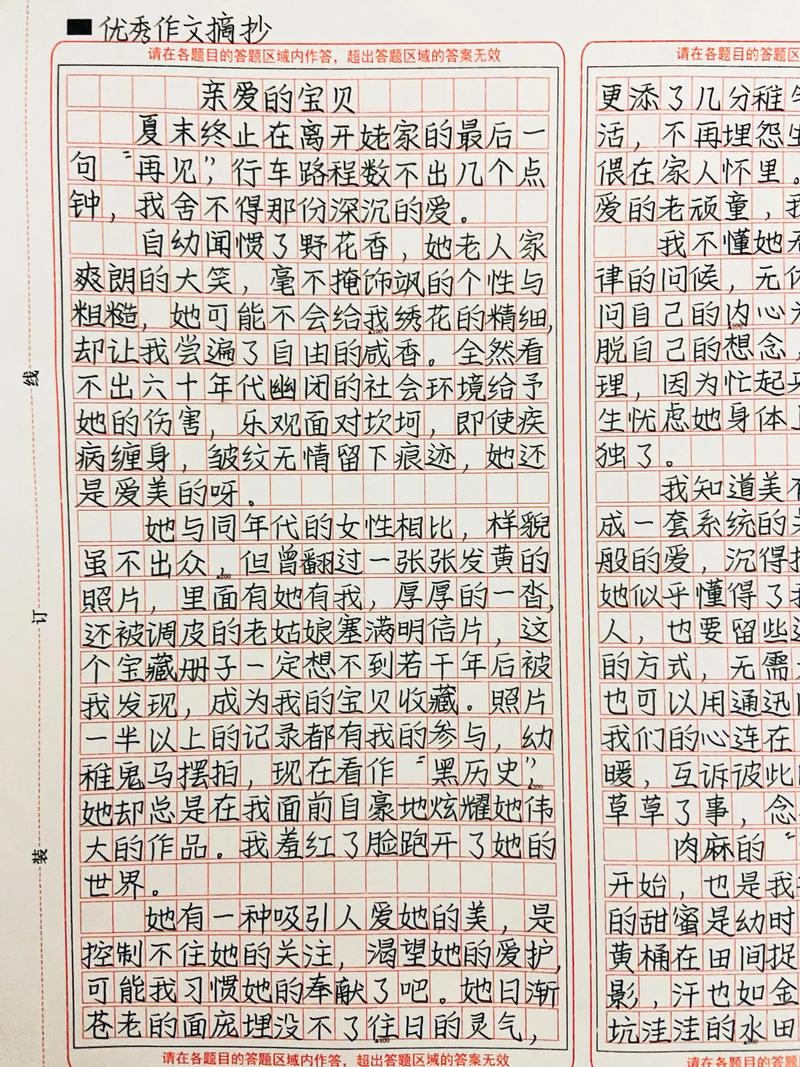 优秀作文摘抄
请在各题目的答题区域内作答，超出答题区域的答案无效
亲爱的宝贝
夏末终止在离开姥家的最后一
句“再见”，行车路程数不出几个点
钟，我舍不得那份深沉的爱。
自幼闻惯了野花香，她老人家
爽朗的大笑，毫不掩饰飒的个性与
粗糙，她可能不会给我绣花的精细，
却让我尝遍了自由的咸香。全然看
不出六十年代幽闭的社会环境给予
她的伤害，乐观面对坎坷，即使疾
病缠身，皱纹无情留下痕迹，她还
是爱美的呀。
她与同年代的女性相比，样貌
虽不出众，但曾翻过一张张发黄的
照片，里面有她有我，厚厚的一沓，
还被调皮的老姑娘塞满明信片，这
个宝藏册子一定想不到若干年后被
我发现，成为我的宝贝收藏。照片
一半以上的记录都有我的参与，幼
稚鬼马摆拍，现在看作“黑历史”，
她却总是在我面前自豪地炫耀她伟
大的作品。我羞红了脸跑开了她的
世界。
她有一种吸引人爱她的美，是
控制不住她的关注，渴望她的爱护，
可能我习惯她的奉献了吧。她日渐
苍老的面庞埋没不了往日的灵气，
请在各题目的答题区域内作答，超出答题区域的答案无效
线
订
装
请在各题目的答题区
更添了几分稚气
活，不再埋怨生
偎在家人怀里。
爱的老顽童，我
我不懂她无
律的问候，无
问自己的内心
脱自己的想念，
理，因为忙起
生忧虑她身体上
独了。
我知道美不
成一套系统的
般的爱，沉得
她似乎懂得了我
人，也要留些
的方式，无需
也可以用通迅
我们的心连在
暖，互诉彼此
草草了事，念
肉麻的“
开始，也是我
的甜蜜是幼时
黄桶在田间捉
影，汗也如金
坑洼洼的水田
请在各题目的答题